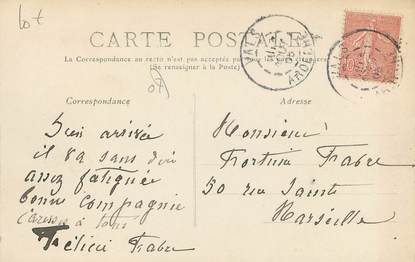 lot
CARTE POSTALE
La Correspondance au recto n'est pas acceptée par tous les pays étrangers
(Se renseigner à la Poste)
Correspondance
Adresse
Bien arrivée
il y a sans dire
assez fatiguée
bonne compagnie
caresses à tous
Félicie Fabre
Monsieur
Fabre
50 rue Sainte
Marseille
VALS
ARDECHE